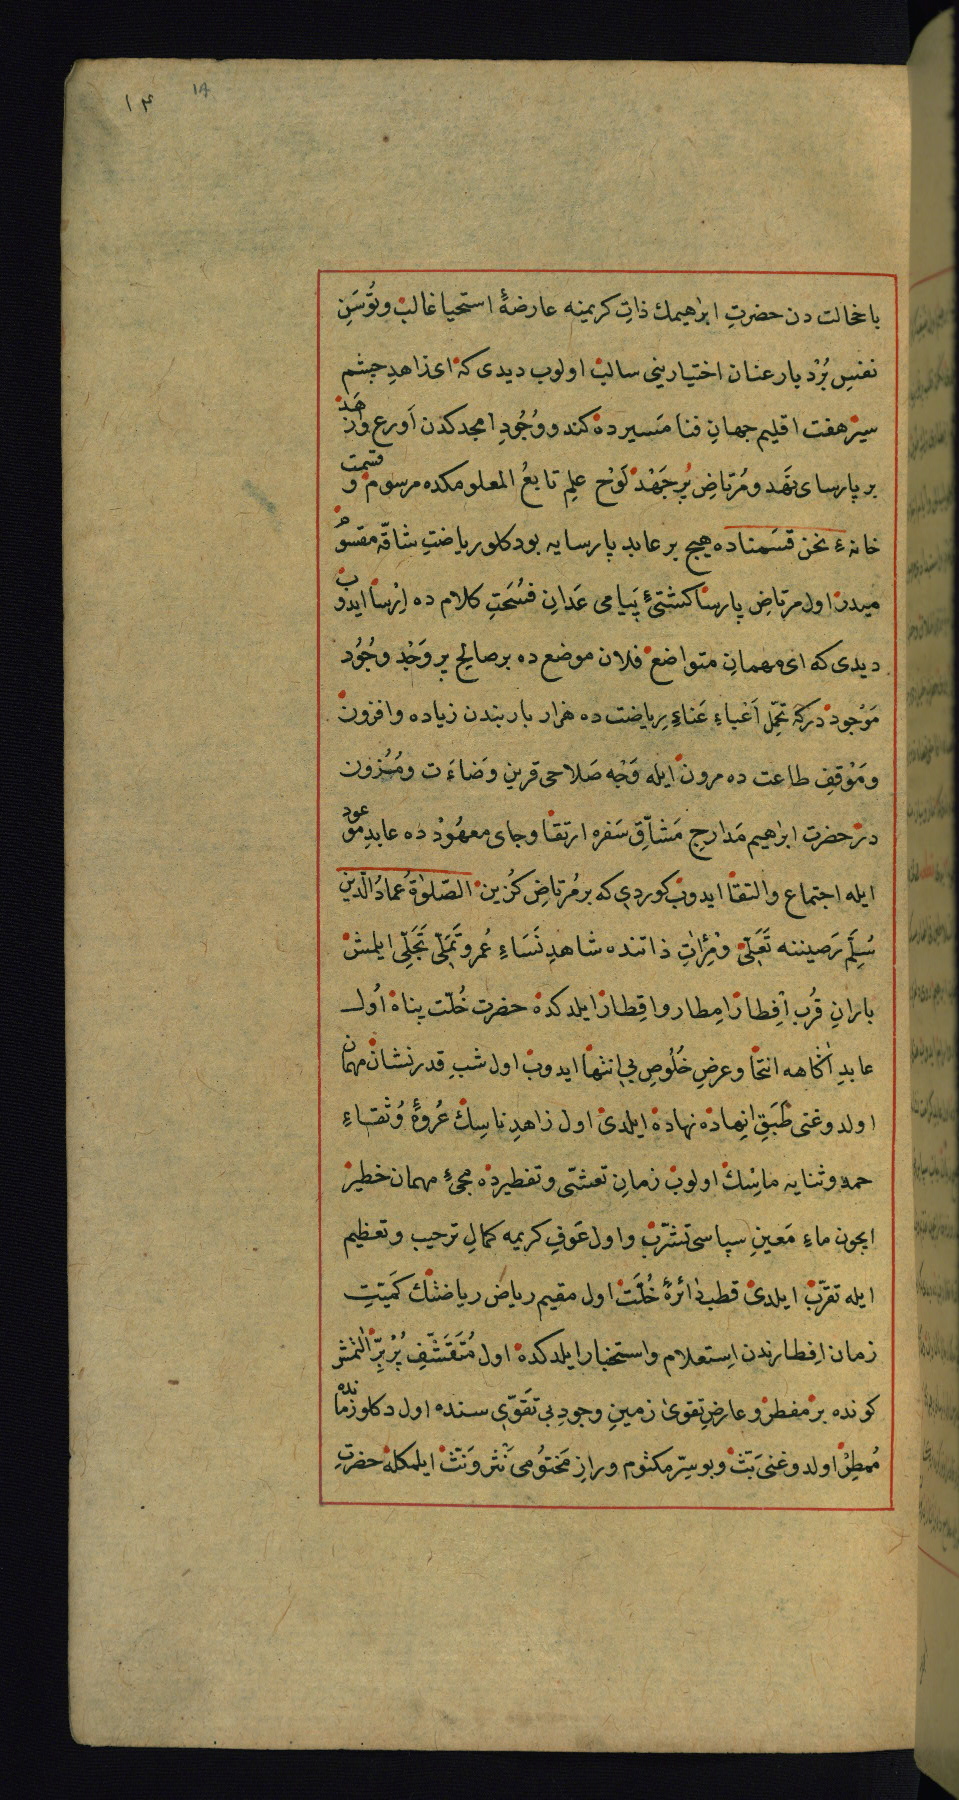 ۱۴ ۱۸
با خجالت دن حضرتِ ابرٰهیمك ذاتِ کریمینه عارضهٔٔ استحیا غالبْ و تُوسَنِ
نفسِ بُرْد بار عنان اختیارینی سالبْ اولوب دیدی کهْ ای زاهدِ چشم
سیرْ هفت اقلیم جهانِ فنا مَسیردهْ کند و وُجُودِ امجدکدن اَورع و ازهَدْ
بر پارسای نهَد و مُرتاضِ پُر جَهْدْ لَوْحِ علِم تابعُ المعلومکده مرسومْ و قسمت
خانهٔ نحن قسَمناده هیچ بر عابد پارسایه بودکلو ریاضتِ شاقّه مقسُومْ
میدرْ اول مرتاضِ پارسا کشتئِ پَیامی عَدانِ فسُحَتِ کلام ده اِرْسا ایدوبْ
دیدی که ای مهمانِ متواضعْ فلان موضع ده بر صالحِ پر وَجْد وجُود
مَوْجودْ درکه تحمّلِ اَعْباءِ عَناءِ ریاضت ده هزار بار بندن زیاده و افزونْ
و مَوْقفِ طاعت ده مرونْ ایله وَجْه صَلاحی قرینِ وَضاءَت و مُـزون
درْ حضرت ابرٰهیم مَدارجِ مَشاقِّ سَفره ارتقا و جای معهُودْ ده عابدِ موعود
ایله اجتماع و التقا ایدوبْ کوردی که بر مُرتاضِ کُزینْ الصّلوٰةُ عمادُ الّدین
سُلّمِ رَصیننه تَعَلّیْ و مِرْاٰتِ ذاتنده شاهدِ نَسَاءِ عُمر و تَمَلّی تَجَلّی ایلمشْ
بارانِ قُربِ اْفِطارْ اِمطار و اقِطارْ ایلدکدهْ حضرت خُلّت پناهْ اُول
عابدِ اٰکاهه انتحا و عرضِ خُلُوصِ بی اِنتها ایدوبْ اول شبِ قدر نشانْ مهمان
اولدوغنی طَبَقِ اِنهادهْ نهادهْ ایلدیْ اول زاهدِ ناسِكْ عُروهٔٔ وُثْقاءِ
حمد و ثنایه ماسِكْ اولوبْ زمانِ تعشّی و تفطیردهْ مجئِ مهمان خطیرْ
ایچون ماءِ مَعینِ سپاسی تشرّبْ و اول عَوفِ کریمه کمالِ ترحیب و تعظیم
ایله تقرّبْ ایلدیْ قطب دٰائرهٔٔ خُلّتْ اول مقیم ریاض ریاضتك کَمیّتِ
زمان اِفطارندن اِستعلام و استخبار ایلدکدهْ اول مُتَقَشّفِ پُرْ بِرّ اٰلتمش
کونده برْ مفطرْ و عارضِ تقویٰ زمینِ وجودِ بی تَقَوّی سنده اول دکلو زماندهْ
مُمطِرْ اولدوغنی بَثْ و بو سِرِّ مکتوم و رازِ مَختوُمی نَثر و نَثْ ایلمکلهْ حضرتِ